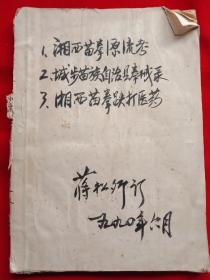 1、湘西苗拳源流考
2、城步苗族自治县拳械录
3、湘西苗拳跌打医药
蒋松卿订
一九九〇年六月